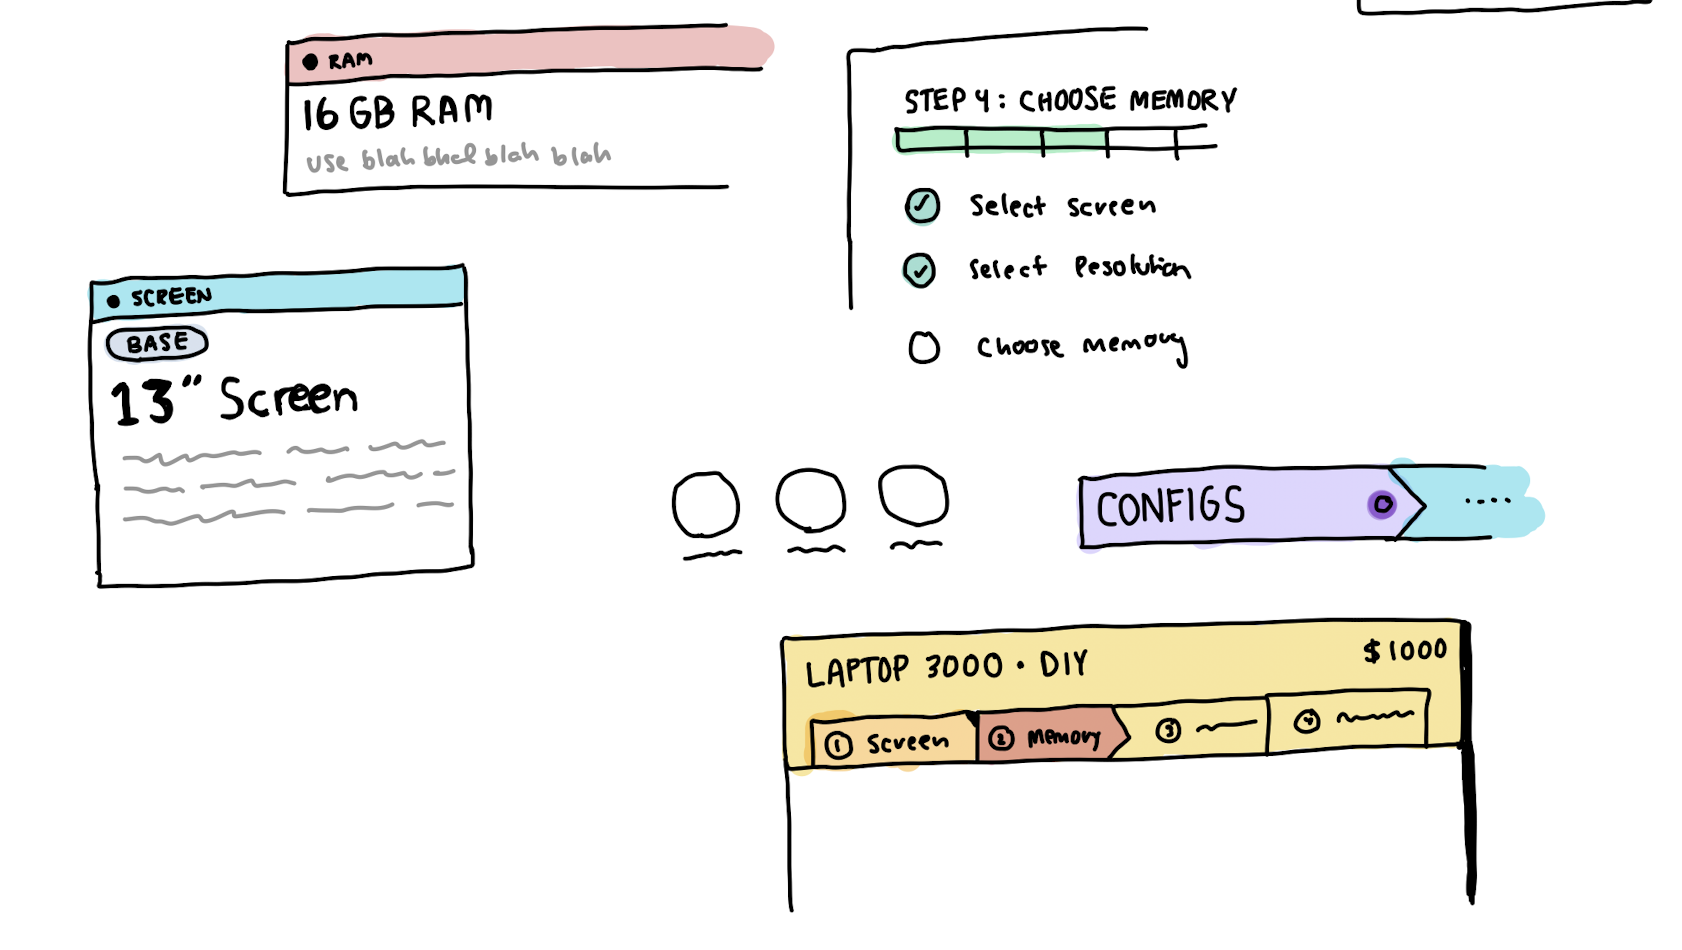 RAM
16 GB RAM
use blah bhal blah blah
STEP 4: CHOOSE MEMORY
Select screen
Select Resolution
Choose memory
SCREEN
BASE
13" Screen
CONFIGS
....
LAPTOP 3000 · DIY
$1000
1 Screen
2 Memory
3
4